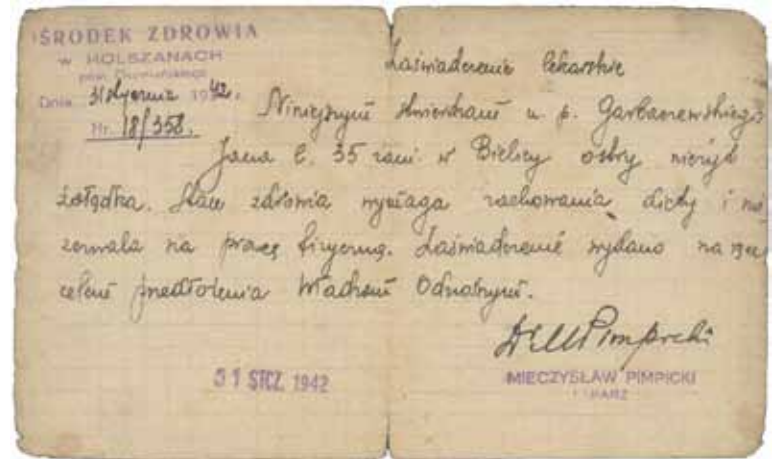 OŚRODEK ZDROWIA
w HOLSZANACH
pow. Oszmiańskiego
Dnia 31 stycznia 1942 r.
Nr. 18/358.
Zaświadczenie lekarskie
Niniejszym stwierdzam u p. Garbaczewskiego
Jana l. 35 zam. w Bielicy ostry nieżyt
żołądka. Stan zdrowia wymaga zachowania diety i nie
zezwala na pracę fizyczną. Zaświadczenie wydano na
celem przedłożenia Władzom Odnośnym.
Dr M Pimpicki
31 STCZ. 1942
MIECZYSŁAW PIMPICKI
LEKARZ